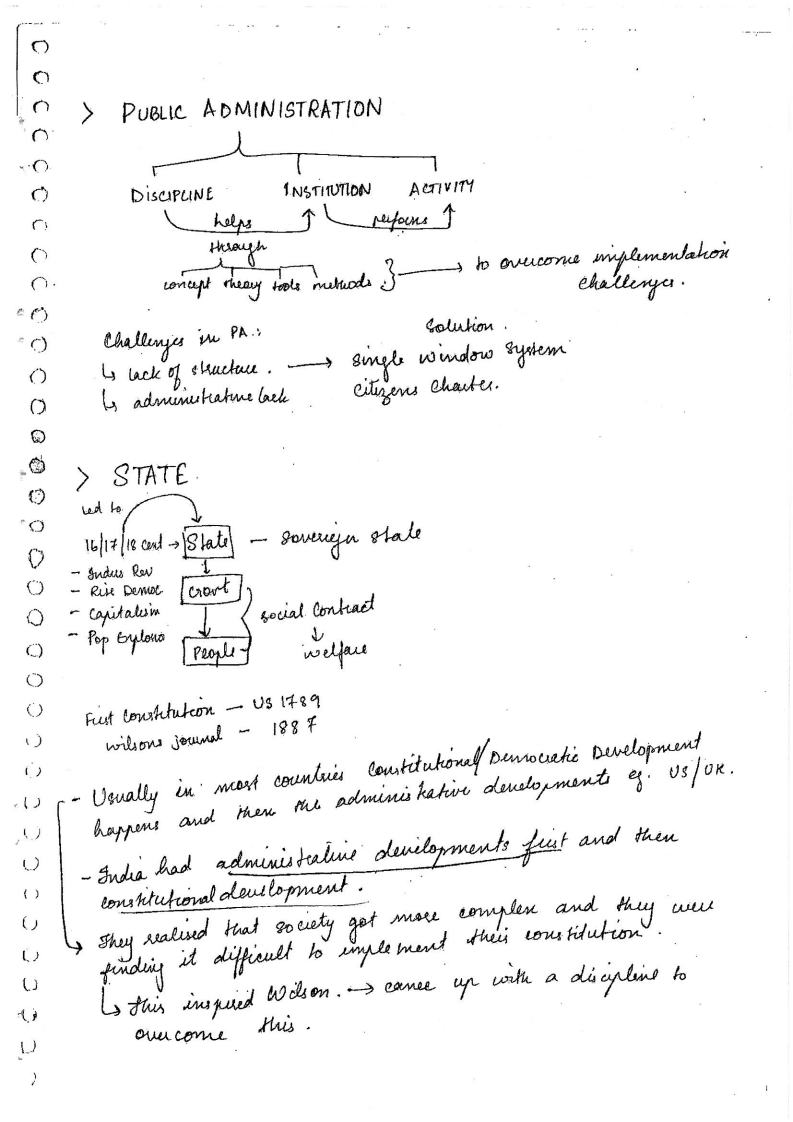 > PUBLIC ADMINISTRATION
DISCIPLINE INSTITUTION ACTIVITY
helps performs
through
concept theory tools methods } → to overcome implementation
challenges.
Challenges in PA:
Solution.
↳ lack of structure. → single window system
↳ administrative lack citizens charter.
> STATE
Led to
16/17/18 cent → State – sovereign state
- Indus Rev
- Rise Democ
- Capitalism
- Pop Explosio
Govt
Social Contract
↓
People welfare
First Constitution – US 1789
Wilsons journal – 1887
- Usually in most countries Constitutional/Democratic Development
happens and then the administrative developments eg. US/UK.
- India had administrative developments first and then
constitutional development.
→ They realised that society got more complex and they were
finding it difficult to implement their constitution.
↳ This inspired Wilson. → came up with a discipline to
overcome this.